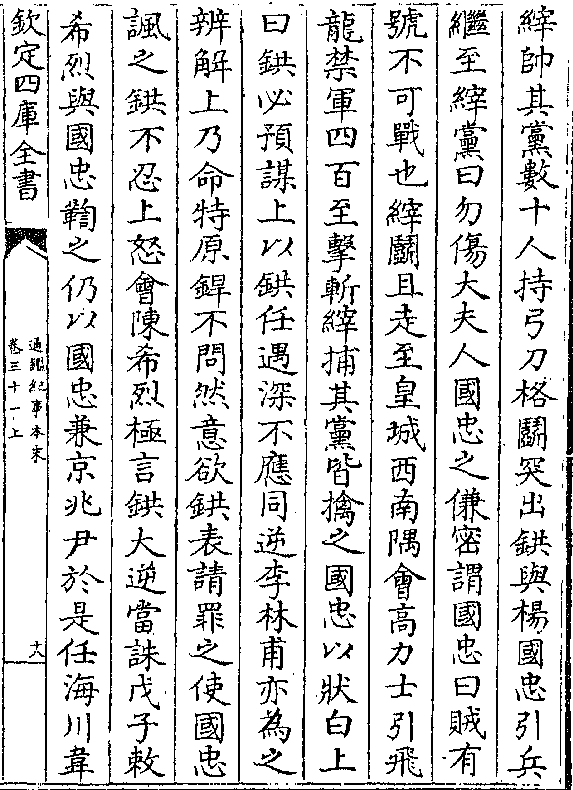 縡帥其黨數十人持弓刀格鬬突出鉷與楊國忠引兵
繼至縡黨曰勿傷大夫人國忠之傔密謂國忠曰賊有
號不可戰也縡鬬且走至皇城西南隅會高力士引飛
龍禁軍四百至擊斬縡捕其黨皆擒之國忠以狀白上
曰鉷必預謀上以鉷任遇深不應同逆李林甫亦為之
辨解上乃命特原銲不問然意欲鉷表請罪之使國忠
諷之鉷不忍上怒會陳希烈極言鉷大逆當誅戊子敕
希烈與國忠鞫之仍以國忠兼京兆尹於是任海川韋
欽定四庫全書
通鑑紀事本末
卷三十一上
十八